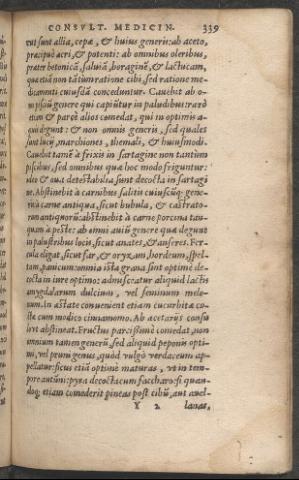 CONSVLT. MEDICIN. 339
cut sunt allia, cepæ, & huius generis: ab aceto,
præcipuè acri, & potenti: ab omnibus oleribus,
præter betonicã, saluiã, boraginẽ, & lactucam,
quæ etiã non tãtùm ratione cibi, sed ratione me-
dicamenti cuiusdã conceduntur. Cauebit ab o-
mni pisciũ genere qui capiũtur in paludibus: rarò
etiam & parcè alios comedat, qui in optimis a-
quis degunt: & non omnis generis, sed quales
sunt lucij, marchiones, themali, & huiusmodi.
Cauebit tamẽ à frixis in sartagine non tantùm
piscibus, sed omnibus quæ hoc modo friguntur:
& detestabilia sunt decocta in sartagi
ne. Abstinebit à carnibus salitis cuiuscũq; gene-
ris: à carne antiqua, sicut bubula, & castrato-
rum antiquorũ: abstinebit à carne porcina tan-
quam à peste: ab omni auiũ genere quæ degunt
in palustribus locis, sicut anates, & anseres. Fer-
cula eligat, sicut far, & oryzam, hordeum, spel-
tam, panicum: omnia ista grana sunt optimè de-
cocta in iure optimo: admisceatur aliquid lactis
amygdalarum dulcium, vel seminum melo-
num. In æstate conuenient etiam cucurbitæ co-
ctæ cum modico cinnamomo. Ab acetarijs consu
lo vt abstineat. Fructus parcissimè comedat, non
omnium tamen generũ, sed aliquid peponis opti-
mi, vel pruni genus, quòd vulgò verdaceum ap-
pellatur: ficus etiã optimè maturas, vt in tem-
pore autũni: pyra decocta cum saccharo: si quan-
doq; etiam comederit pineas post cibũ, aut auel-
Y 2 lanas,